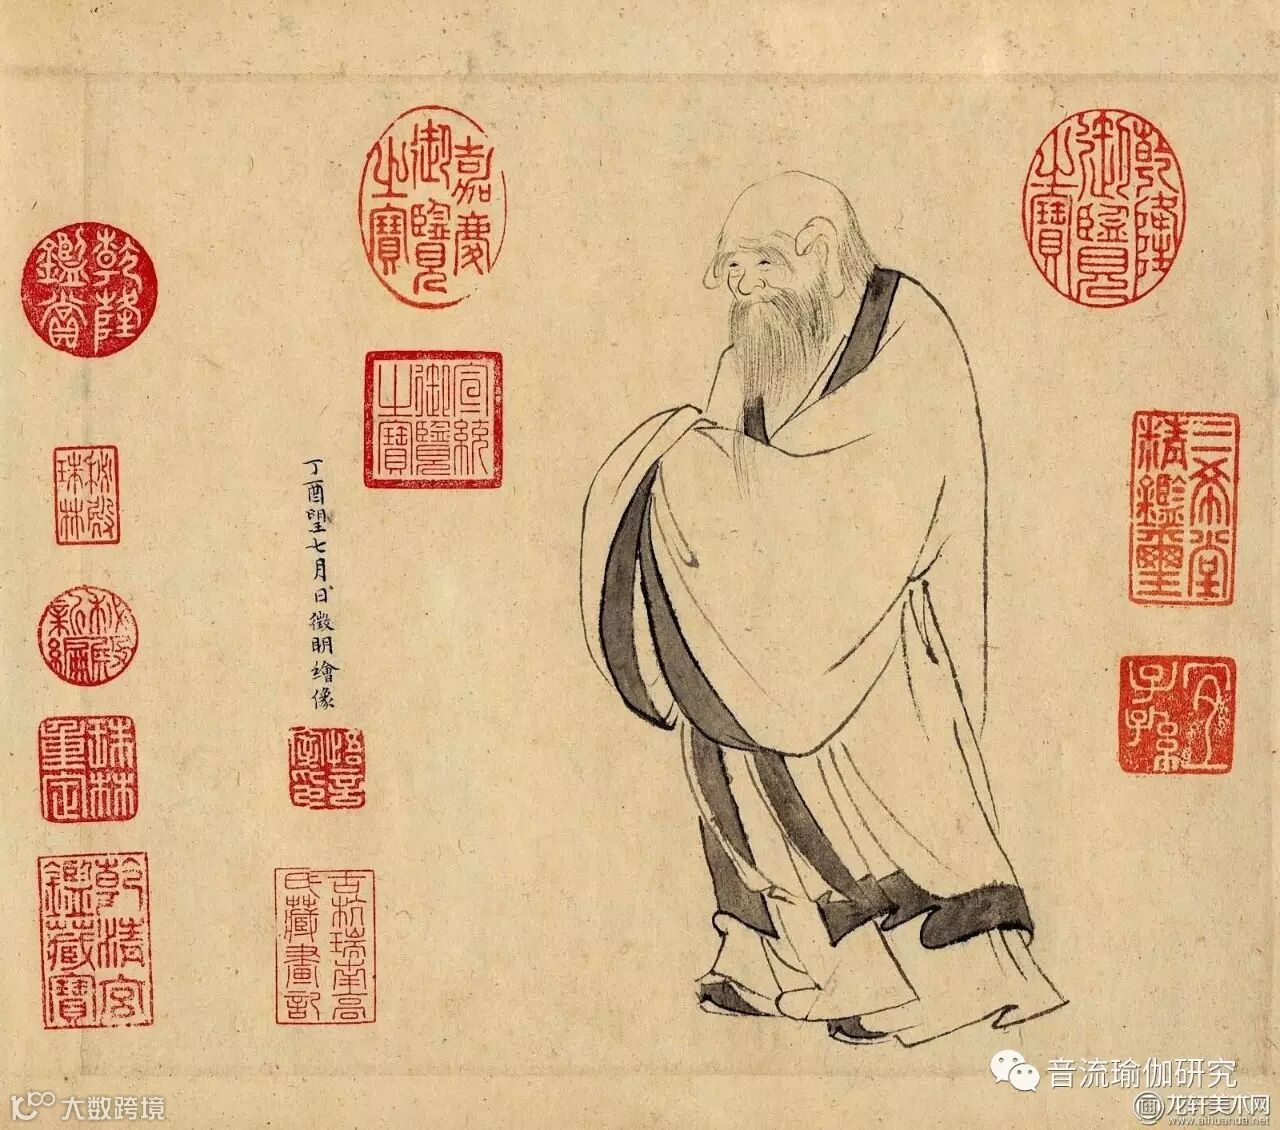 乾隆御覽之寶
三希堂精鑑璽
宜子孫
嘉慶御覽之寶
宣統御覽之寶
丁酉望七月日徵明繪像
悟言室印
古杭瑞南高氏藏畫記
乾隆鑑賞
秘殿珠林
秘殿新編
珠林重定
乾清宮鑑藏寶
音流瑜伽研究
大数跨境
龙轩美术网
www.aihuahua.net